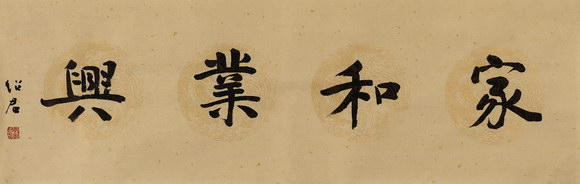 家和業興
绍君